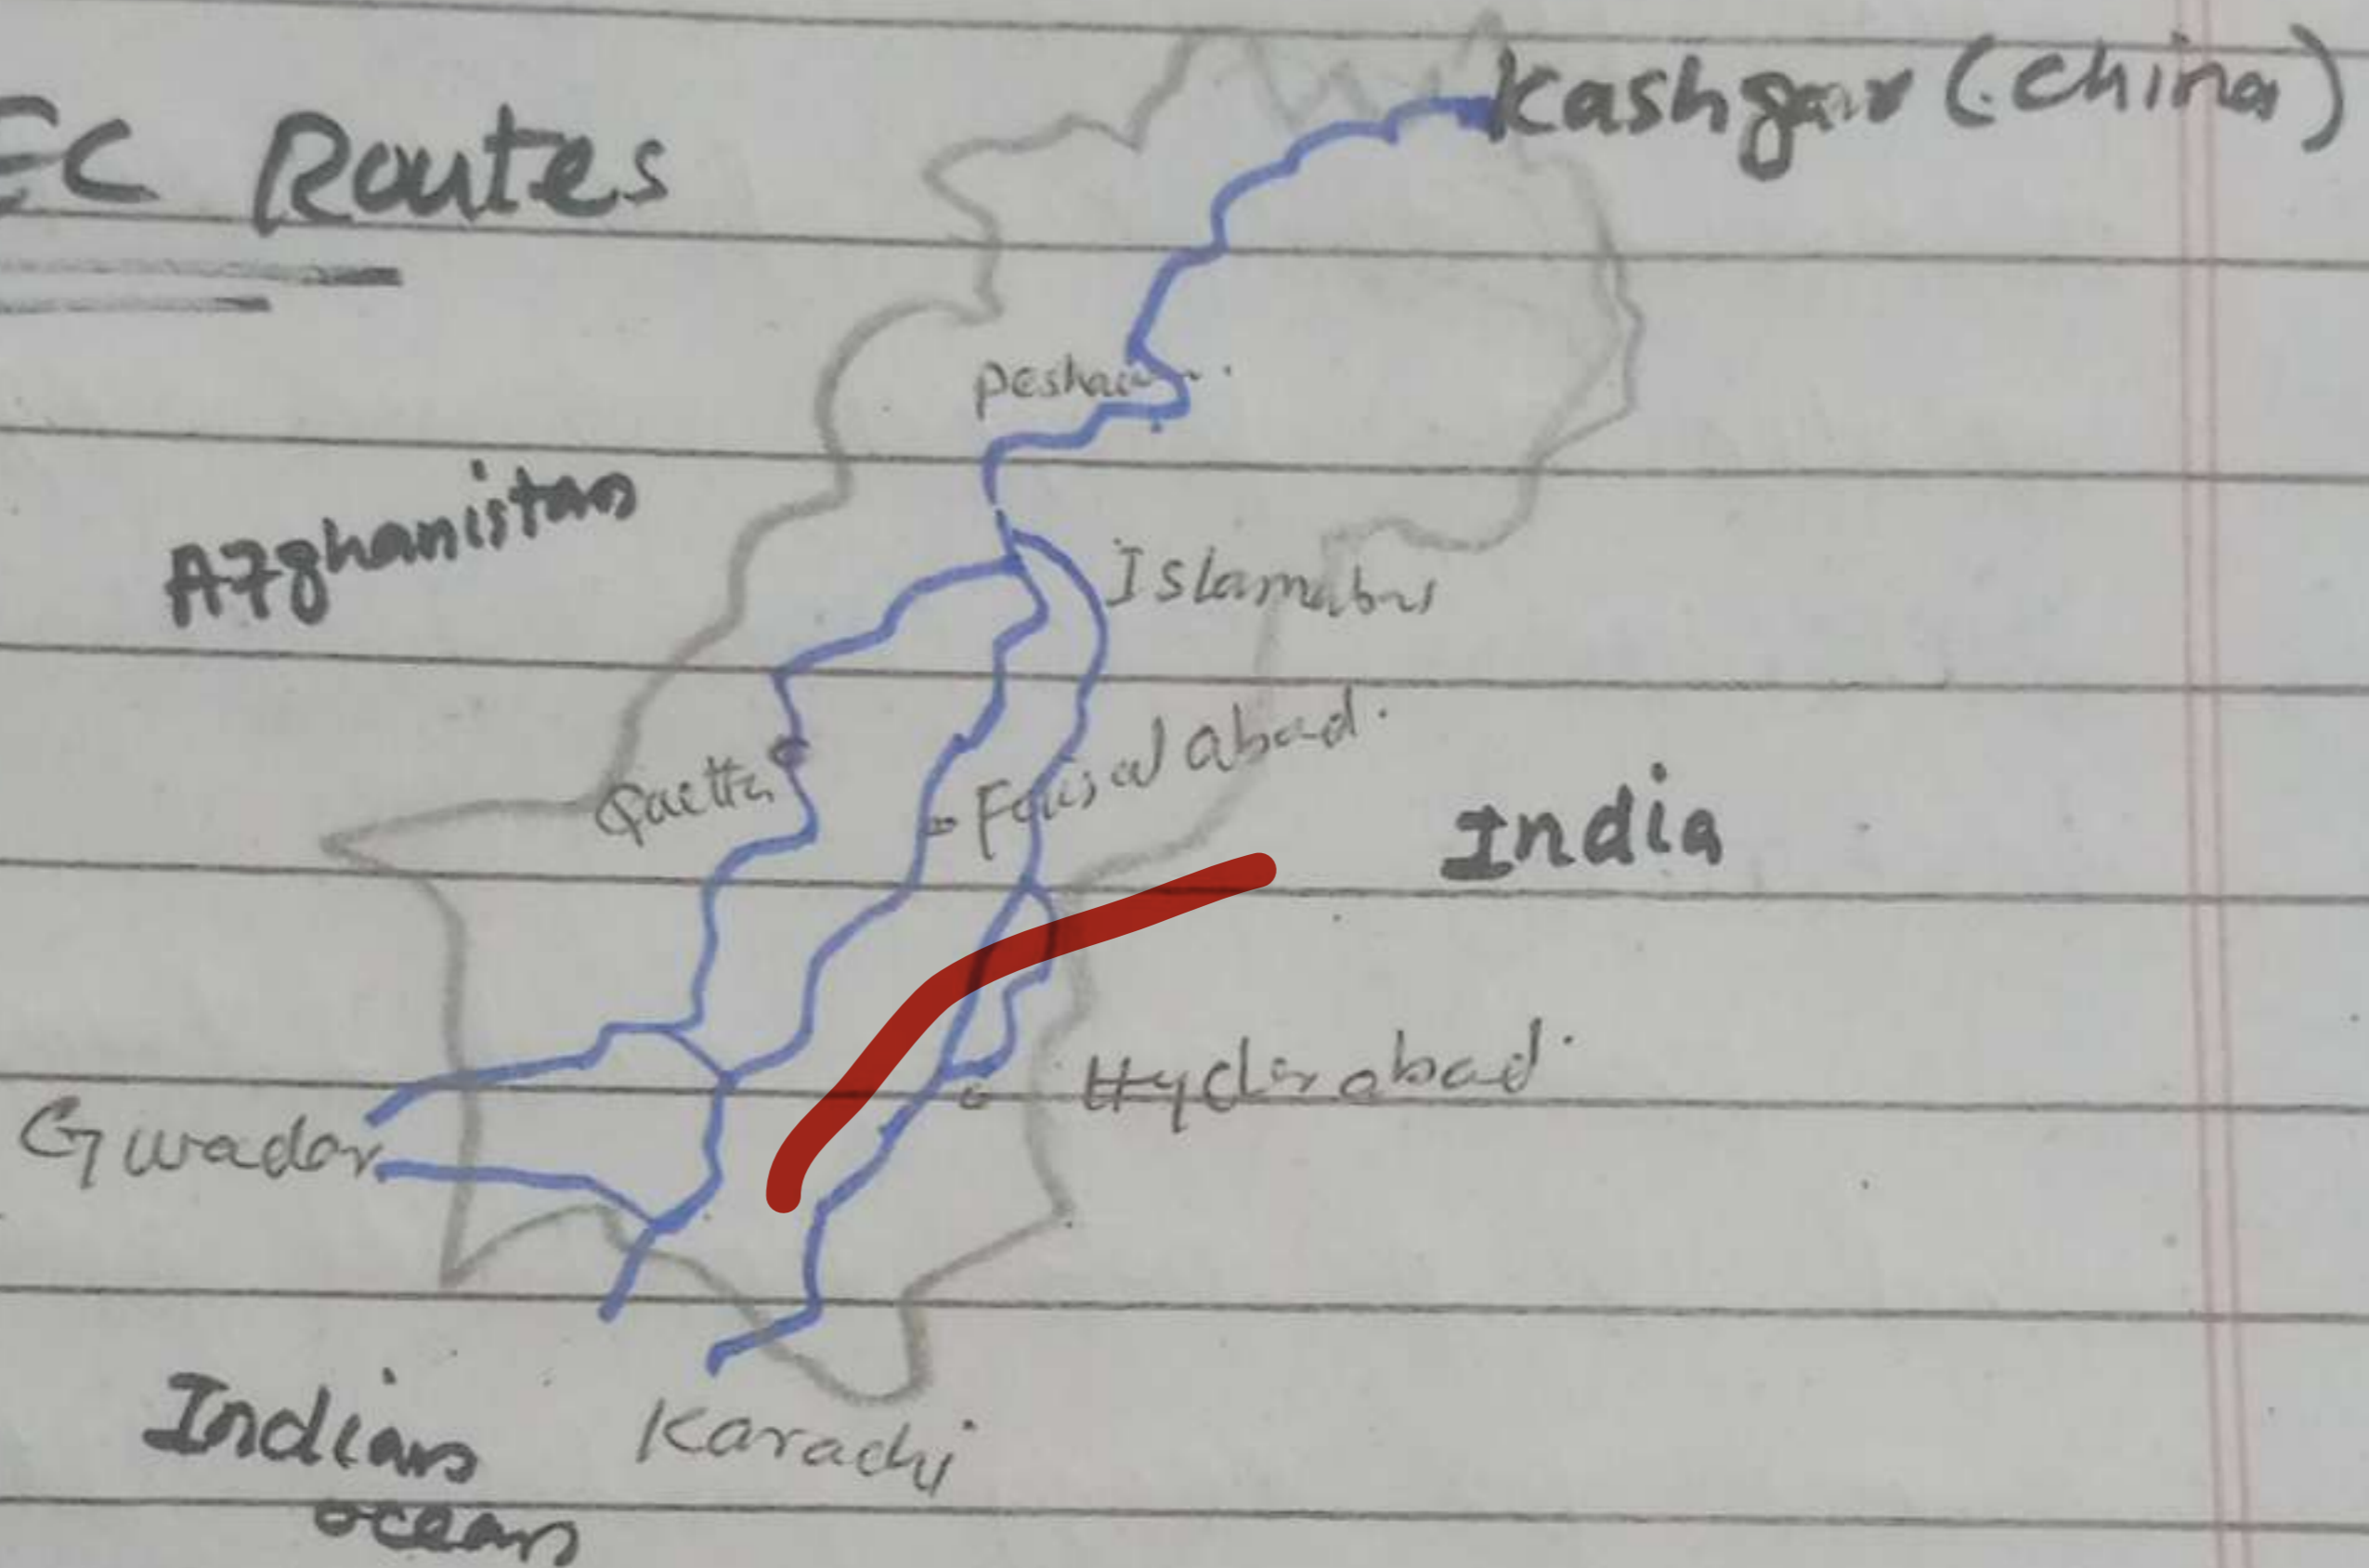 EC Routes
Kashgar (China)
Afghanistan
Islamabad
Quetta
Faisal abad.
India
Gwadar
Hyderabad.
Indian
ocean
Karachi